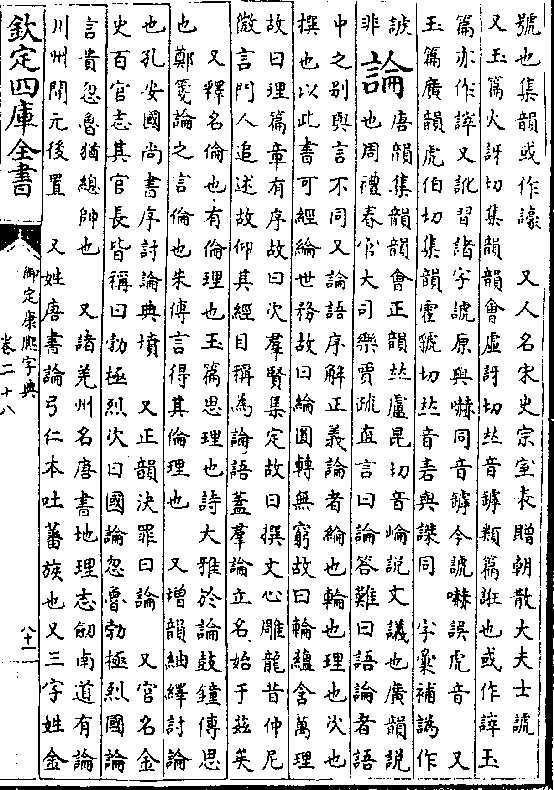 號也集韻或作諕　又人名宋史宗室表贈朝散大夫士諕
又玉篇火訝切集韻韻會虛訝切𠀤音罅類篇誑也或作誶玉
篇亦作誶又訛習諸字諕原與嚇同音罅今諕嚇誤虎音　又
玉篇廣韻虎伯切集韻霍虢切𠀤音砉與謋同　字彙補譌作
𧩂非論唐韻集韻韻會正韻𠀤盧昆切音崘說文議也廣韻說
也周禮春官大司樂賈疏直言曰論答難曰語論者語
中之別與言不同又論語序解正義論者綸也輪也理也次也
撰也以此書可經綸世務故曰綸圓轉無窮故曰輪蘊含萬理
故曰理篇章有序故曰次羣賢集定故曰撰文心雕龍昔仲尼
微言門人追述故仰其經目稱為論語蓋羣論立名始于茲矣
又釋名倫也有倫理也玉篇思理也詩大雅於論鼓鐘傳思
也鄭箋論之言倫也朱傳言得其倫理也　又增韻紬繹討論
也孔安國尚書序討論典墳　又正韻決罪曰論　又官名金
史百官志其官長皆稱曰勃極烈次曰國論忽魯勃極烈國論
言貴忽魯猶總帥也　又諸羌州名唐書地理志劒南道有論
川州開元後置　又姓唐書論弓仁本吐蕃族也又三字姓金
欽定四庫全書
御定康熙字典
卷二十八